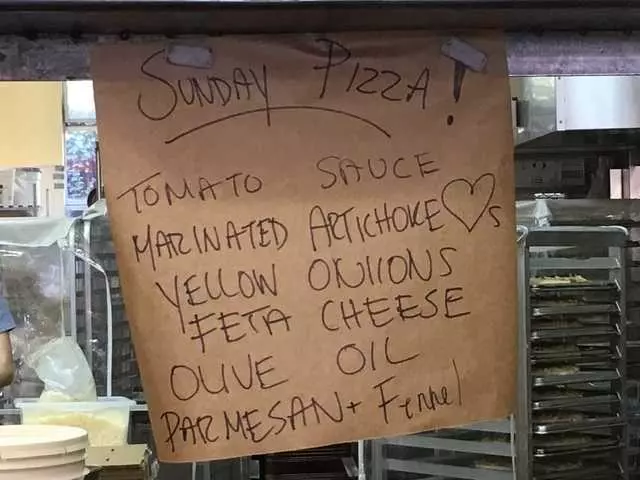 SUNDAY PIZZA!
TOMATO SAUCE
MARINATED ARTICHOKE ♡s
YELLOW ONIONS
FETA CHEESE
OLIVE OIL
PARMESAN + Fennel